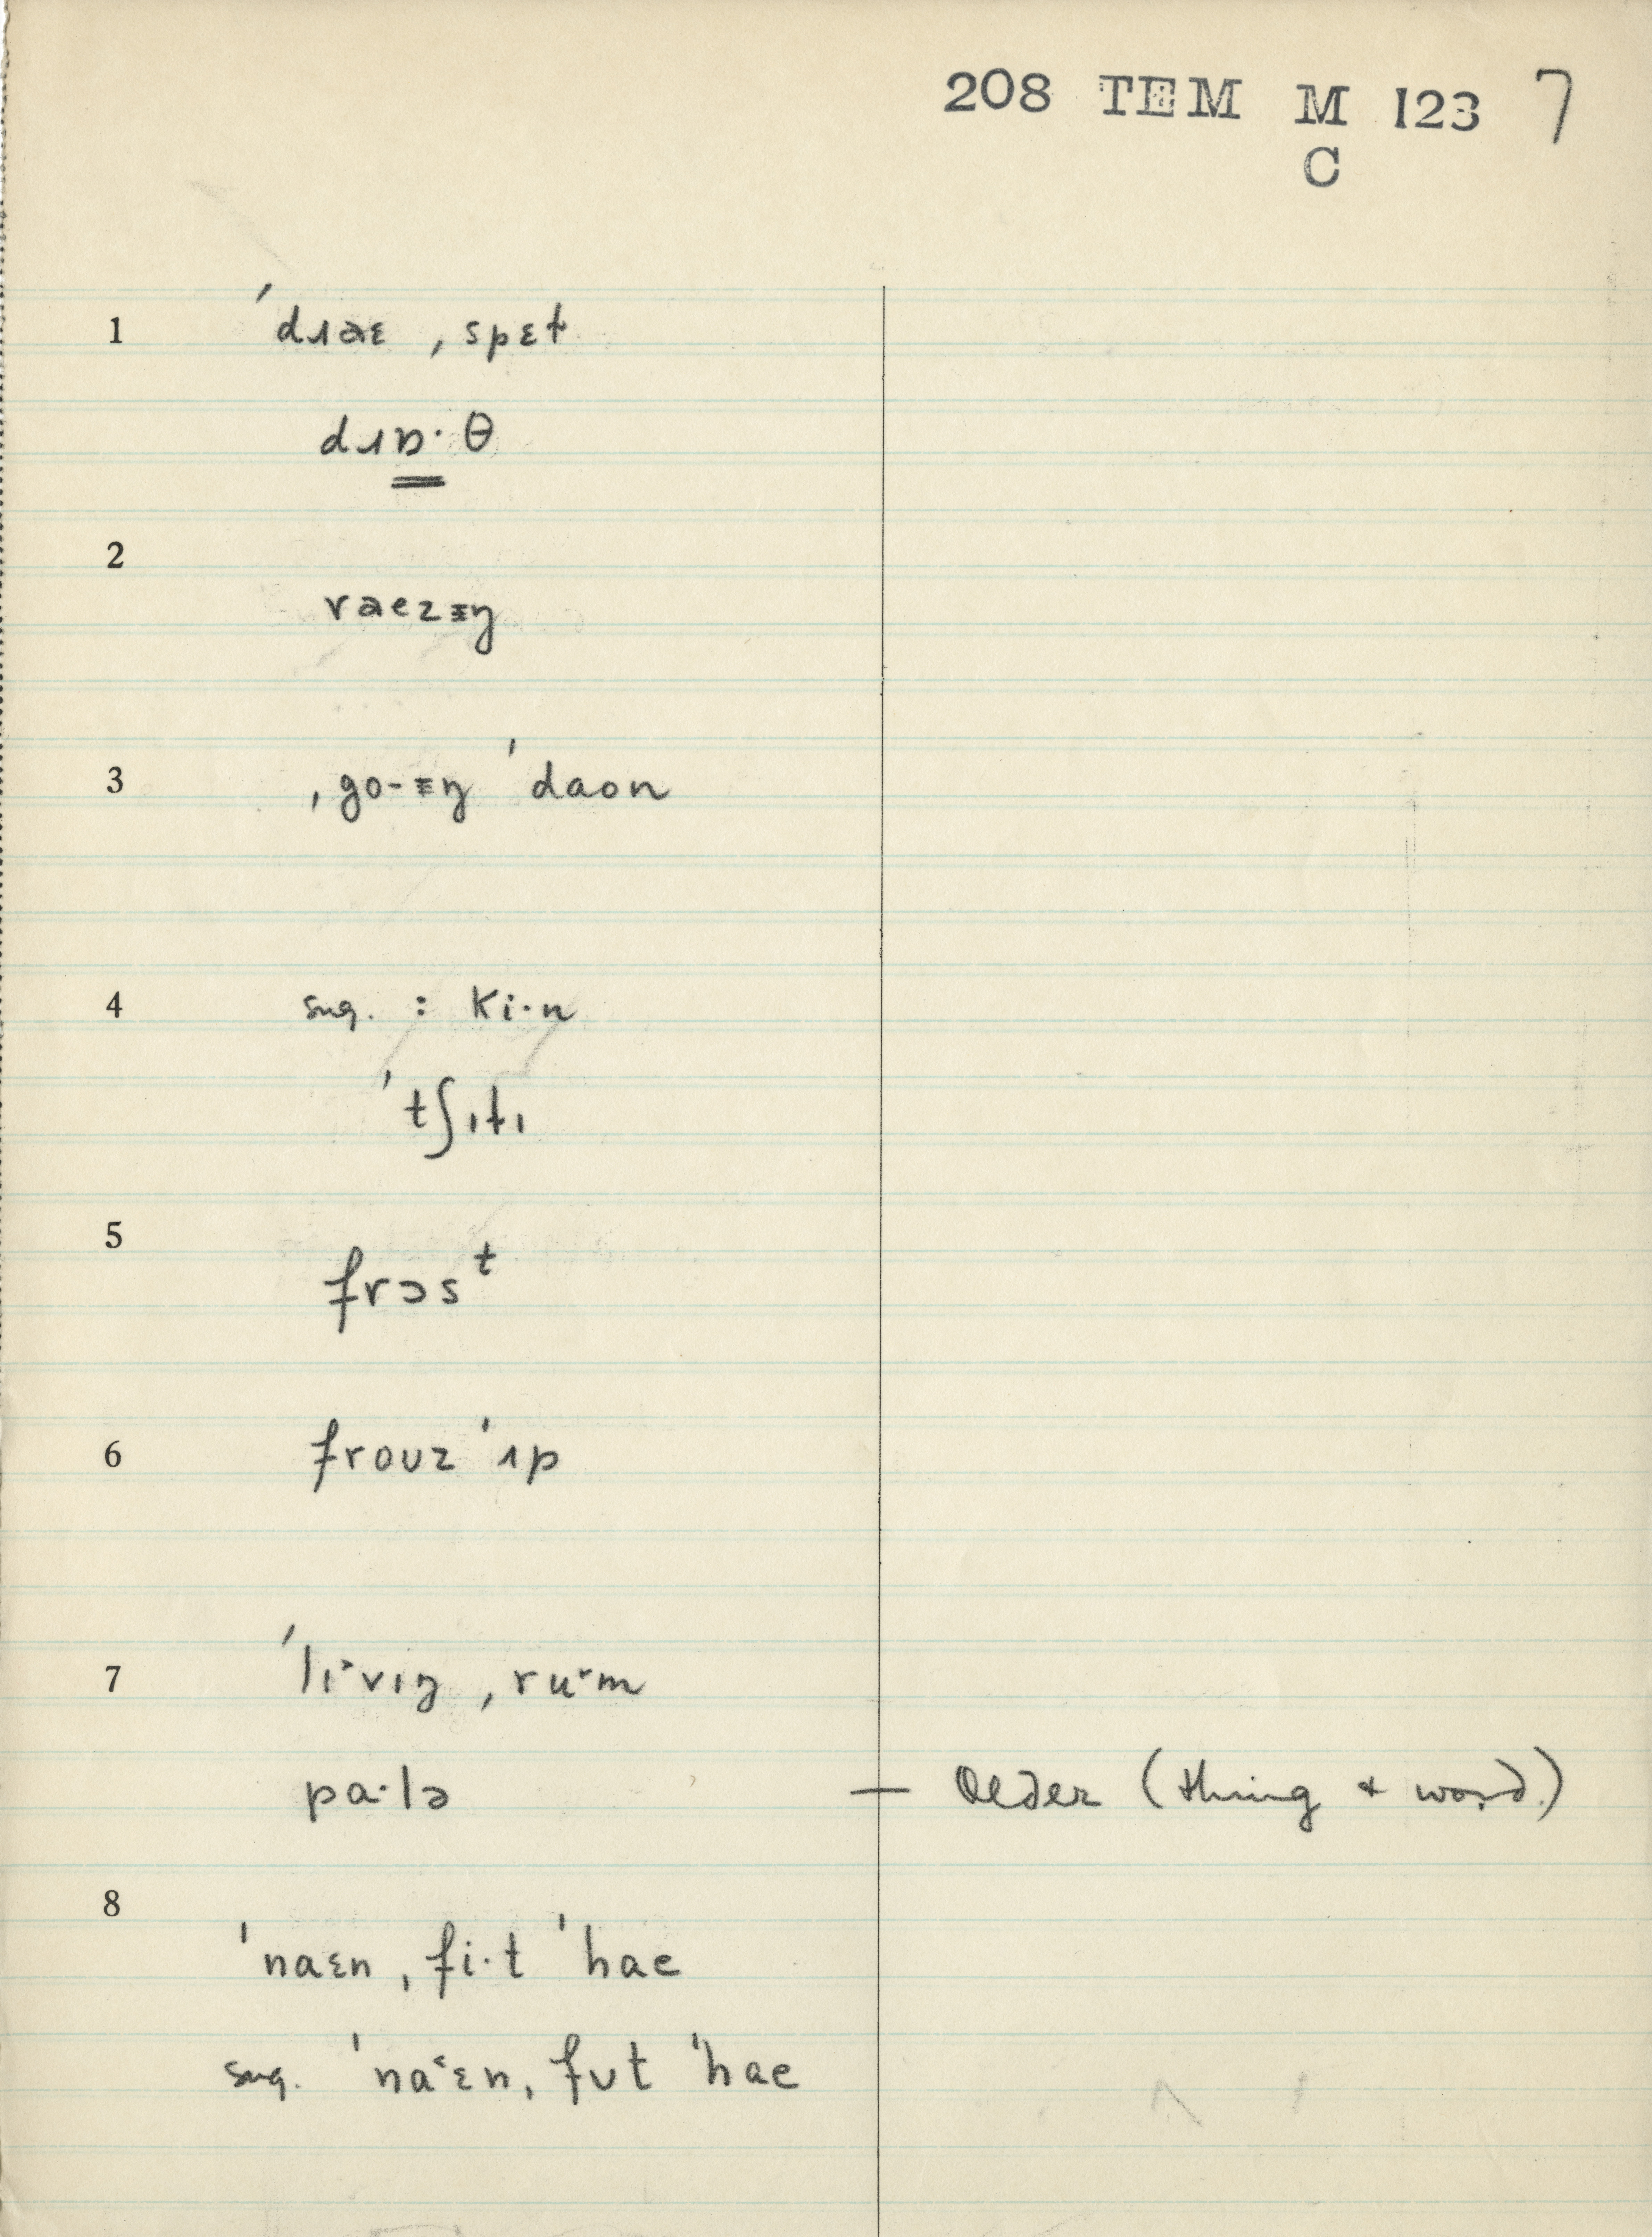 208 TEM M 123 7
C
1 ˈdɹaɛ ˌspɛt
dɹɒ·θ
2
raezɪŋ
3 ˌgo-ɪŋ ˈdaon
4 sug. : ki·n
ˈtʃɪtɪ
5
frɔsᵗ
6 frouz ˈɪp
7 ˈlɪ˞vɪŋ ˌru˞m
pa·lə — Older (thing + word.)
8
ˈnaɛn ˌfi·t ˈhae
sug. ˈnaˑɛn ˌfʊt ˈhae